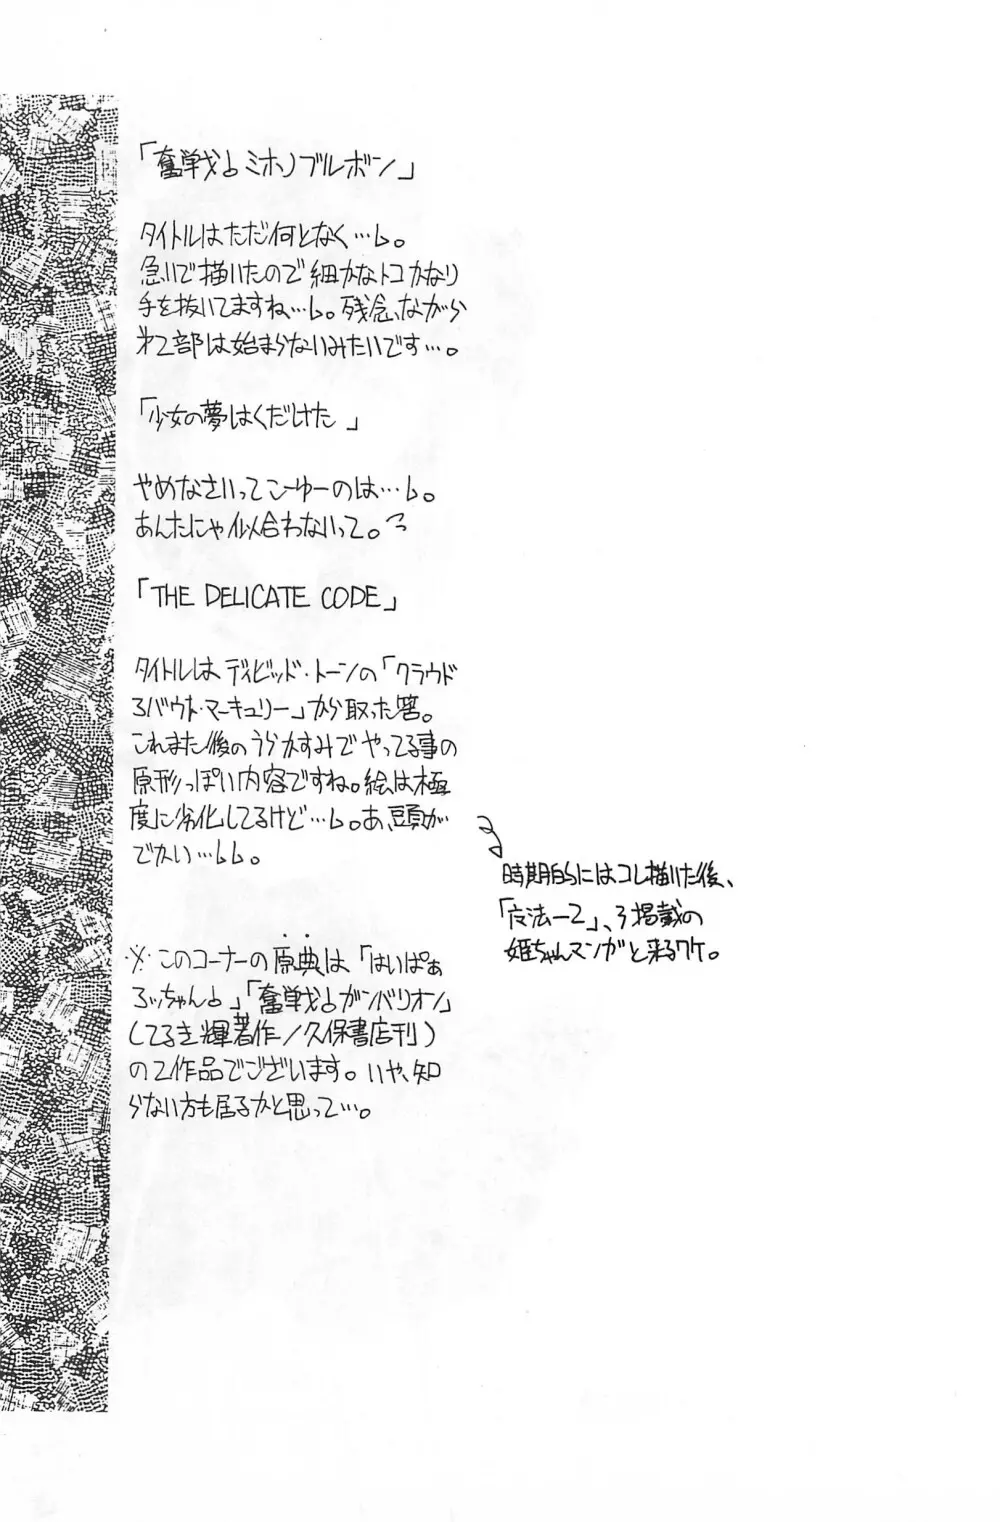 「奮戦♭ミホノブルボン」
タイトルはただ何となく…♭。
急いで描いたので細かなトコかなり
手を抜いてますね…♭。残念ながら
第2部は始まらないみたいです…。
「少女の夢はくだけた」
やめなさいってこーゆーのは…♭。
あんたにゃ似合わないって。
「THE DELICATE CODE」
タイトルはディビッド・トーンの「クラウド
アバウト・マーキュリー」から取った筈。
これまた後のうらかすみでやってる事の
原形っぽい内容ですね。絵は極
度に劣化してるけど…♭。あ、頭が
でかい…♭♭。
時期的にはコレ描いた後、
法一2」、3掲載の
姫ちゃんマンガと来るワケ。
※このコーナーの原典は「はいぱぁ
ろッちゃん♭」「奮戦♭ガンバリオン」
(てるき輝著作/久保書店刊)
の2作品でございます。いや、知
らない方も居るかと思って…。